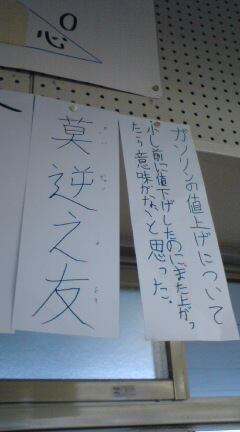 O
心
ガソリンの値上げについて
少し前に値下げしたのにまた上がっ
たら意味がないと思った。
莫逆之友